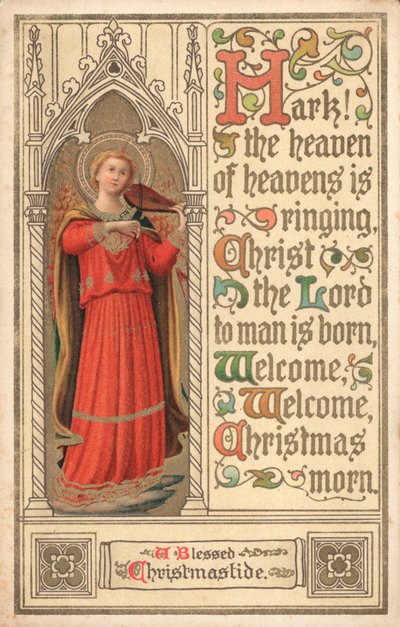 Hark!
the heaven
of heavens is
ringing,
Christ
the Lord
to man is born,
Welcome,
Welcome,
Christmas
morn.
A Blessed
Christmastide.